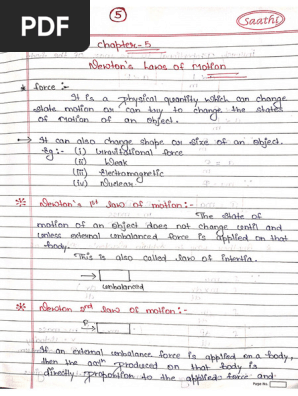 PDF
5
Saathi
Chapter-5
Newton's Laws of Motion
* force :-
It is a physical quantity which can change
state motion or can try to change the states
of motion of an object.
→ It can also change shape or size of an object.
Eg:- (i) Gravitational force
(ii) Weak
(iii) Electromagnetic
(iv) Nuclear
* Newton's 1st law of motion:-
The state of
motion of an object does not change until and
unless external unbalanced force is applied on that
body.
This is also called law of intertia.
unbalanced
* Newton 2nd law of motion:-
F
If an external unbalance force is applied on a body,
then the accn produced on that body is
directly proportion to the applied force and
Page No.